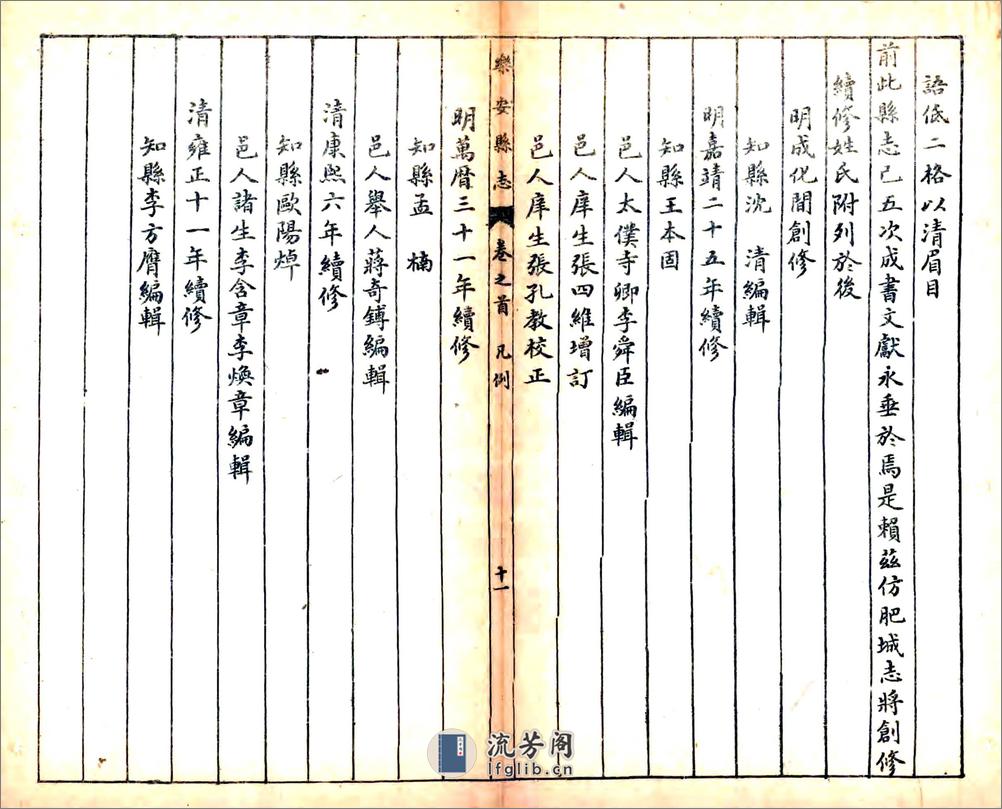 語低二格以清眉目
前此縣志已五次成書文獻永垂於焉是賴茲仿肥城志將創修
續修姓氏附列於後
明成化間創修
知縣沈 清編輯
明嘉靖二十五年續修
知縣王本固
邑人太僕寺卿李舜臣編輯
邑人庠生張四維增訂
邑人庠生張孔教校正
樂安縣志 卷之首 凡例 十一
明萬曆三十一年續修
知縣孟 楠
邑人舉人蔣奇鎛編輯
清康熙六年續修
知縣歐陽焯
邑人諸生李含章李煥章編輯
清雍正十一年續修
知縣李方膺編輯
流芳阁
lfglib.cn